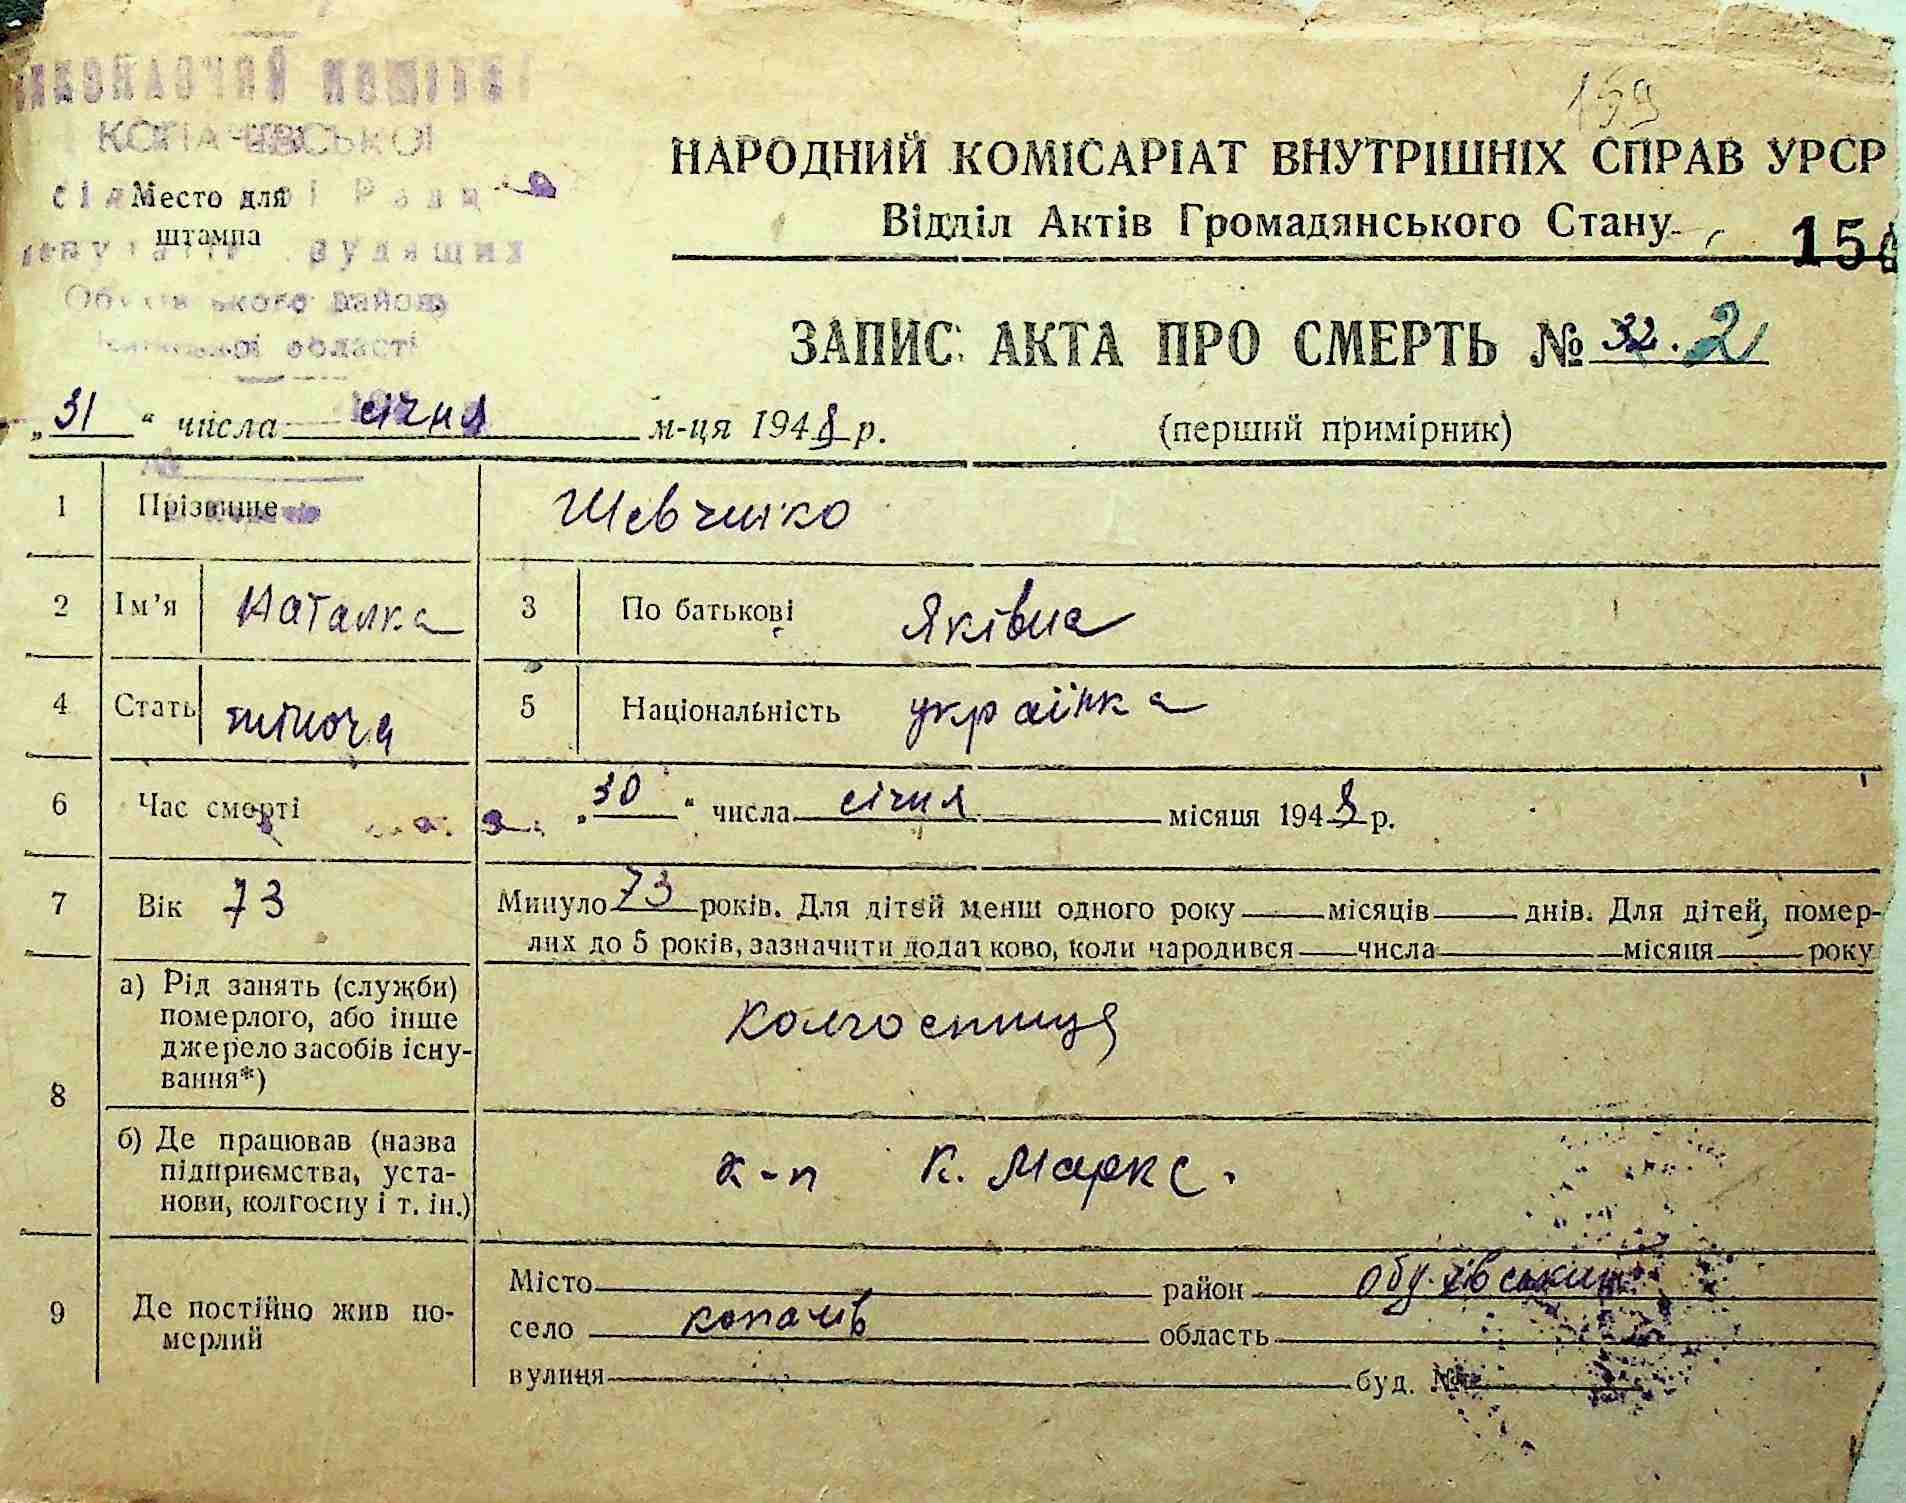 159
КОПАЧІВСЬКОЇ
Место для
штампа
району
області
НАРОДНИЙ КОМІСАРІАТ ВНУТРІШНІХ СПРАВ УРСР
Відділ Актів Громадянського Стану
15
ЗАПИС АКТА ПРО СМЕРТЬ № 32. 2
„31“ числа січня м-ця 1948 р.
(перший примірник)
1 Прізвище Шевченко
2 Ім'я Наталка 3 По батькові Яківна
4 Стать жіноча 5 Національність українка
6 Час смерті „30“ числа січня місяця 1948 р.
7 Вік 73 Минуло 73 років. Для дітей менш одного року місяців днів. Для дітей, помер-
лих до 5 років, зазначити додатково, коли народився числа місяця року
8 а) Рід занять (служби)
померлого, або інше
джерело засобів існу-
вання*)
колгоспниця
б) Де працював (назва
підприємства, уста-
нови, колгоспу і т. ін.)
к-п К. Маркс.
9 Де постійно жив по-
мерлий
Місто район Обухівський
село копачів область
вулиця буд. №